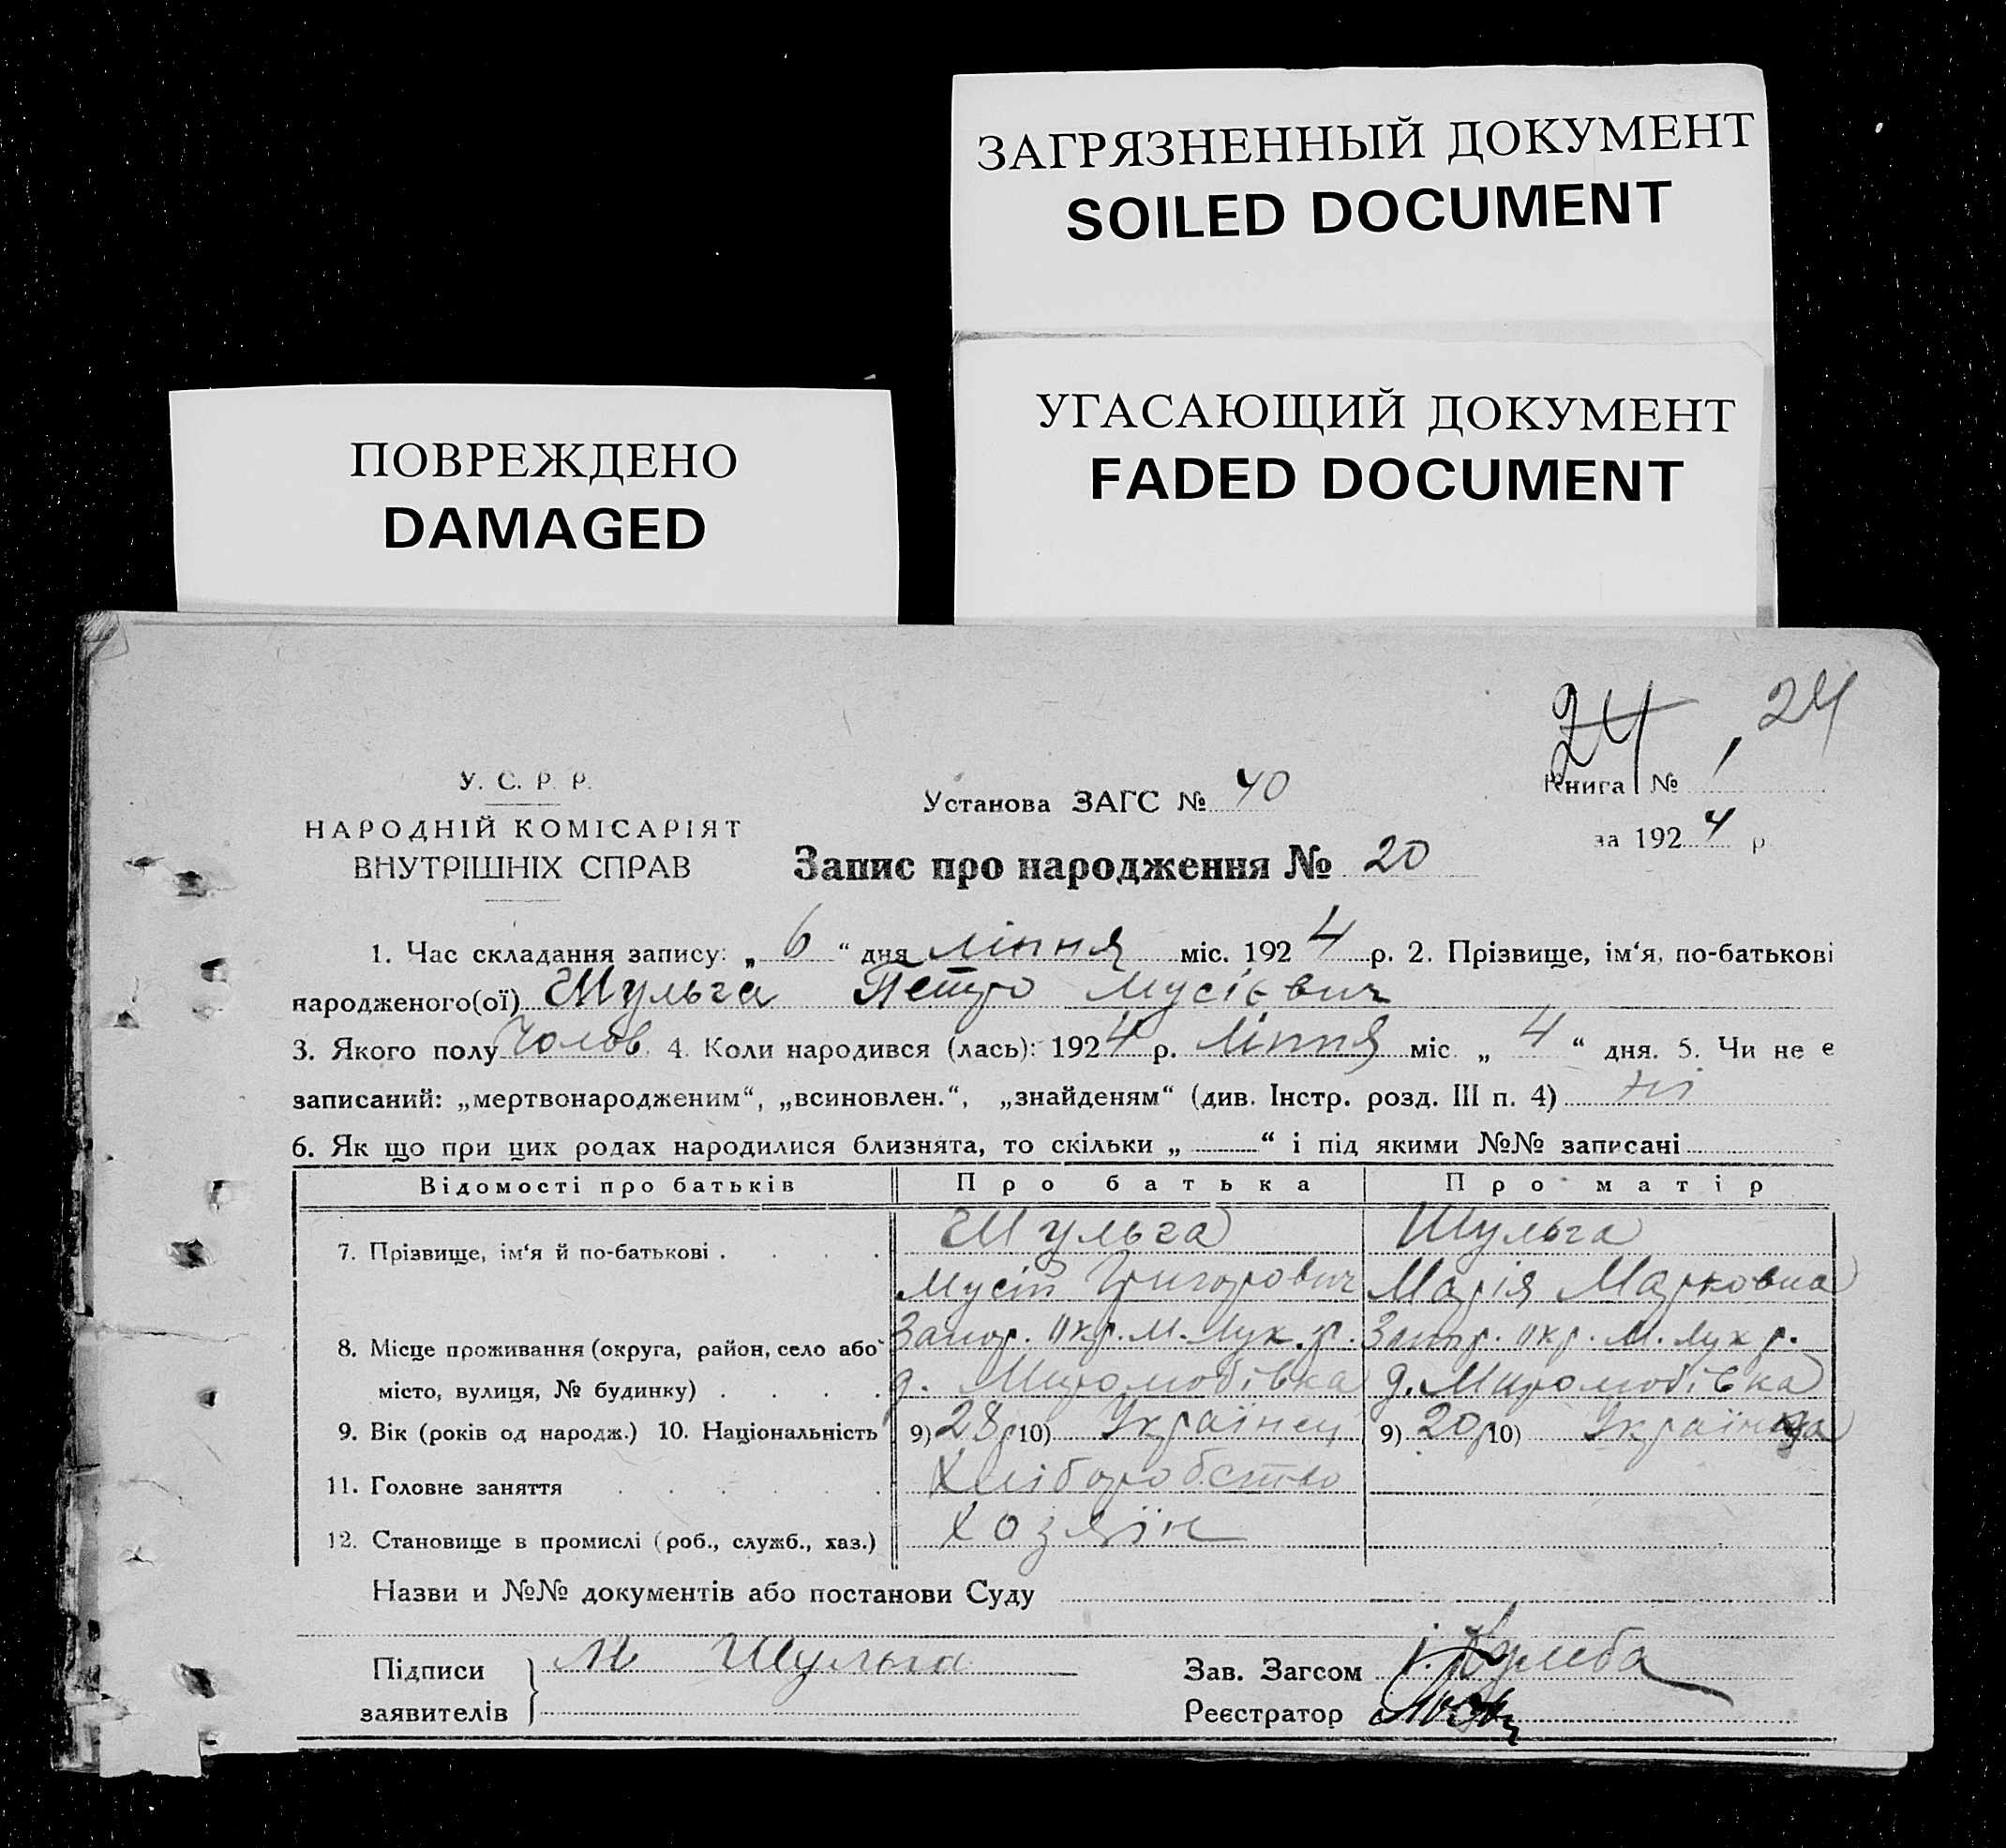 ЗАГРЯЗНЕННЫЙ ДОКУМЕНТ
SOILED DOCUMENT
УГАСАЮЩИЙ ДОКУМЕНТ
FADED DOCUMENT
ПОВРЕЖДЕНО
DAMAGED
24 24
У. С. Р. Р.
НАРОДНІЙ КОМІСАРІЯТ
ВНУТРІШНІХ СПРАВ
Установа ЗАГС № 40
Книга №
за 1924 р
Запис про народження № 20
1. Час складання запису: „ 6 “ дня ліпня міс. 1924 р. 2. Прізвище, ім‘я, по-батькові
народженого(ої) Шульга Петро Мусієвич
3. Якого полу Чолов. 4. Коли народився (лась): 1924 р. ліпня міс „ 4 “ дня. 5. Чи не є
записаний: „мертвонародженим“, „всиновлен.“, „знайденям“ (див. Інстр. розд. III п. 4) ні
6. Як що при цих родах народилися близнята, то скільки „ “ і під якими №№ записані
Відомості про батьків Про батька Про матір
7. Прізвище, ім‘я й по-батькові . Шульга Шульга
Мусій Григорович Марія Марковна
8. Місце проживання (округа, район, село або Запор. окр. М. Лук. р. Запор. окр. М. Лук р.
місто, вулиця, № будинку) д. Миролюбівка д. Миролюбівка
9. Вік (років од народж.) 10. Національність 9) 28 10) Українец 9) 20 10) Українка
11. Головне заняття Хліборобство
12. Становище в промислі (роб., служб., хаз.) Хозяїн
Назви и №№ документів або постанови Суду
Підписи М Шульга
заявителів
Зав. Загсом
Реєстратор